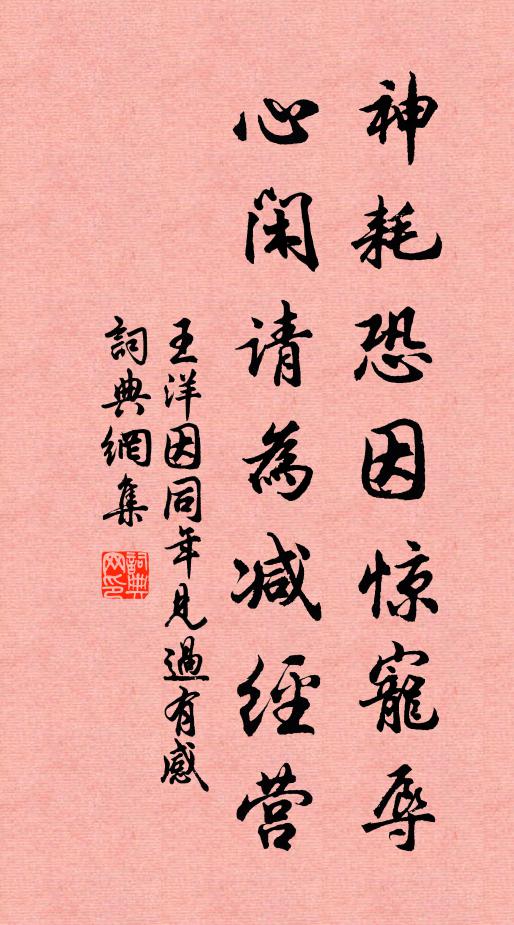 神耗恐因惊寵辱
心闲请為减經营
王洋因同年見過有感
詞典網集
詞典网印